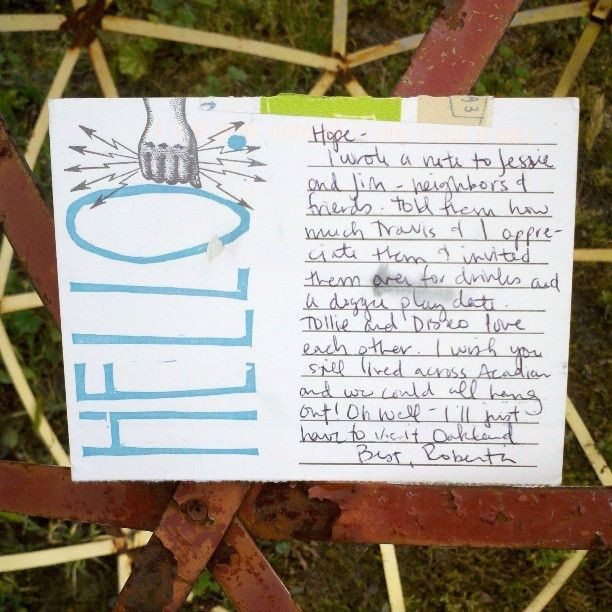 HELLO
Hope -
I wrote a note to Jessie
and Jim - neighbors &
friends. Told them how
much Travis & I appre-
ciate them & invited
them over for drinks and
a doggie play date.
Tollie and Disko love
each other. I wish you
still lived across Acadian
and we could all hang
out! Oh well - I'll just
have to visit Oakland
Best, Roberta